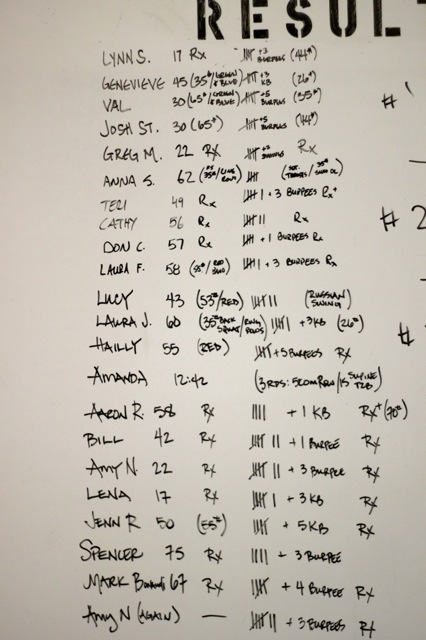 RESUL
LYNN S. 17 Rx 𝍸 +3 BURPEES (44#)
GENEVIEVE 45 (35#/GREEN & BLUE) 𝍸 +3 KB (26#)
VAL 30 (65#/GREEN & BLUE) 𝍸 +5 BURPEES (35#)
JOSH ST. 30 (65#) 𝍸 +5 BURPEES (44#)
GREG M. 22 Rx 𝍸 Rx
ANNA S. 62 𝍸
TERI 49 Rx 𝍸 I + 3 BURPEES Rx+
CATHY 56 Rx 𝍸 II Rx
DON C. 57 Rx 𝍸 + 1 BURPEES Rx
LAURA F. 58 𝍸 I + 3 BURPEES Rx
LUCY 43 (53#/RED) 𝍸 II (RUSSIAN SWING)
LAURA J. 60 (35# BACK SQUAT/RING ROWS) 𝍸 I +3KB (26#)
HAILLY 55 (RED) 𝍸 +5 BURPEES Rx
AMANDA 12:42 (3 RDS: 500M ROW/15 SUPINE T2B)
AARON R. 58 Rx IIII + 1 KB Rx+ (70#)
BILL 42 Rx 𝍸 II + 1 BURPEE Rx
AMY N. 22 Rx 𝍸 II + 3 BURPEE Rx
LENA 17 Rx 𝍸 I + 3 KB Rx
JENN R 50 (55#) 𝍸 + 5 KB Rx
SPENCER 75 Rx IIII + 3 BURPEE
MARK 67 Rx 𝍸 + 4 BURPEE Rx
Amy N (AGAIN) — 𝍸 II + 3 BURPEES Rx
# 2
#